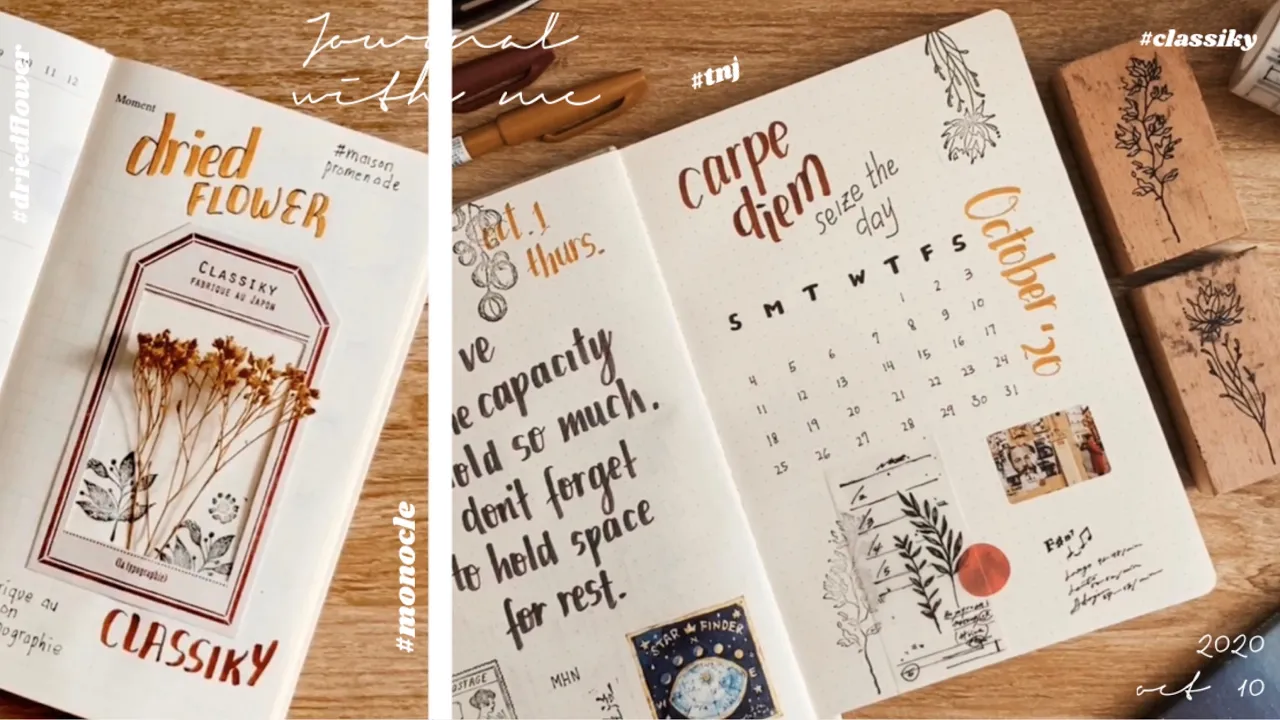 Journal
with me
#driedflower
#monocle
#tnj
#classiky
2020
oct 10
9 10 11 12
Moment
dried
FLOWER
#maison
promenade
CLASSIKY
FABRIQUE AU JAPON
(la typographie)
CLASSIKY
rique au
on
pographie
oct. 1
thurs.
ve
e capacity
old so much.
don't forget
to hold space
for rest.
OSTAGE
MHN
STAR FINDER
carpe
diem
seize the
day
October '20
S M T W T F S
1 2 3
4 5 6 7 8 9 10
11 12 13 14 15 16 17
18 19 20 21 22 23 24
25 26 27 28 29 30 31